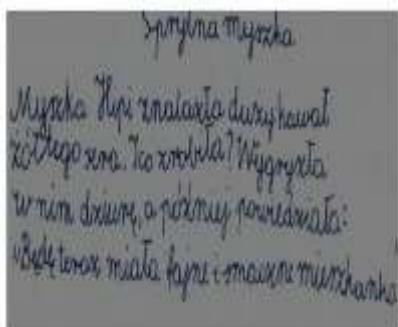 Sprytna myszka
Myszka Hipi znalazła duży kawał
żółtego sera. I co zrobiła? Wygryzła
w nim dziurę, a później powiedziała:
"Będę teraz miała fajne i smaczne mieszkanko